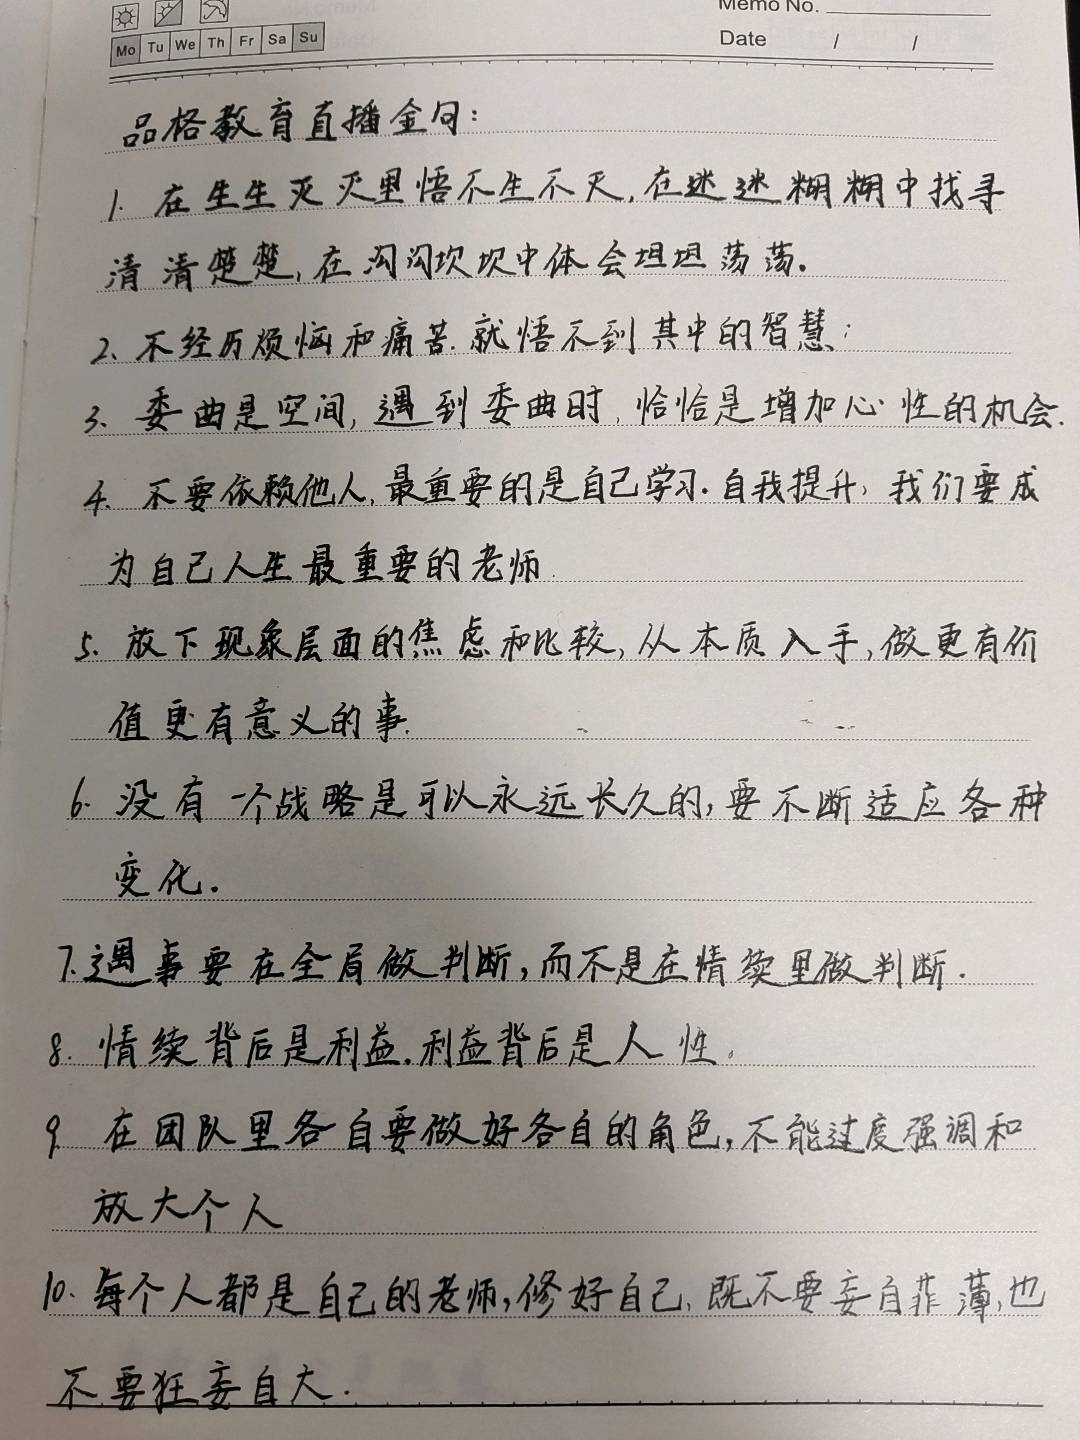 Memo No.
Mo Tu We Th Fr Sa Su
Date / /
品格教育直播金句:
1. 在生生灭灭里悟不生不灭,在迷迷糊糊中找寻
清清楚楚,在沟沟坎坎中体会坦坦荡荡.
2、不经历烦恼和痛苦.就悟不到其中的智慧;
3、委曲是空间,遇到委曲时,恰恰是增加心性的机会.
4. 不要依赖他人,最重要的是自己学习.自我提升,我们要成
为自己人生最重要的老师.
5. 放下现象层面的焦虑和比较,从本质入手,做更有价
值更有意义的事.
6. 没有一个战略是可以永远长久的,要不断适应各种
变化.
7.遇事要在全局做判断,而不是在情续里做判断.
8. 情续背后是利益.利益背后是人性。
9. 在团队里各自要做好各自的角色,不能过度强调和
放大个人
10. 每个人都是自己的老师,修好自己,既不要妄自菲薄,也
不要狂妄自大.